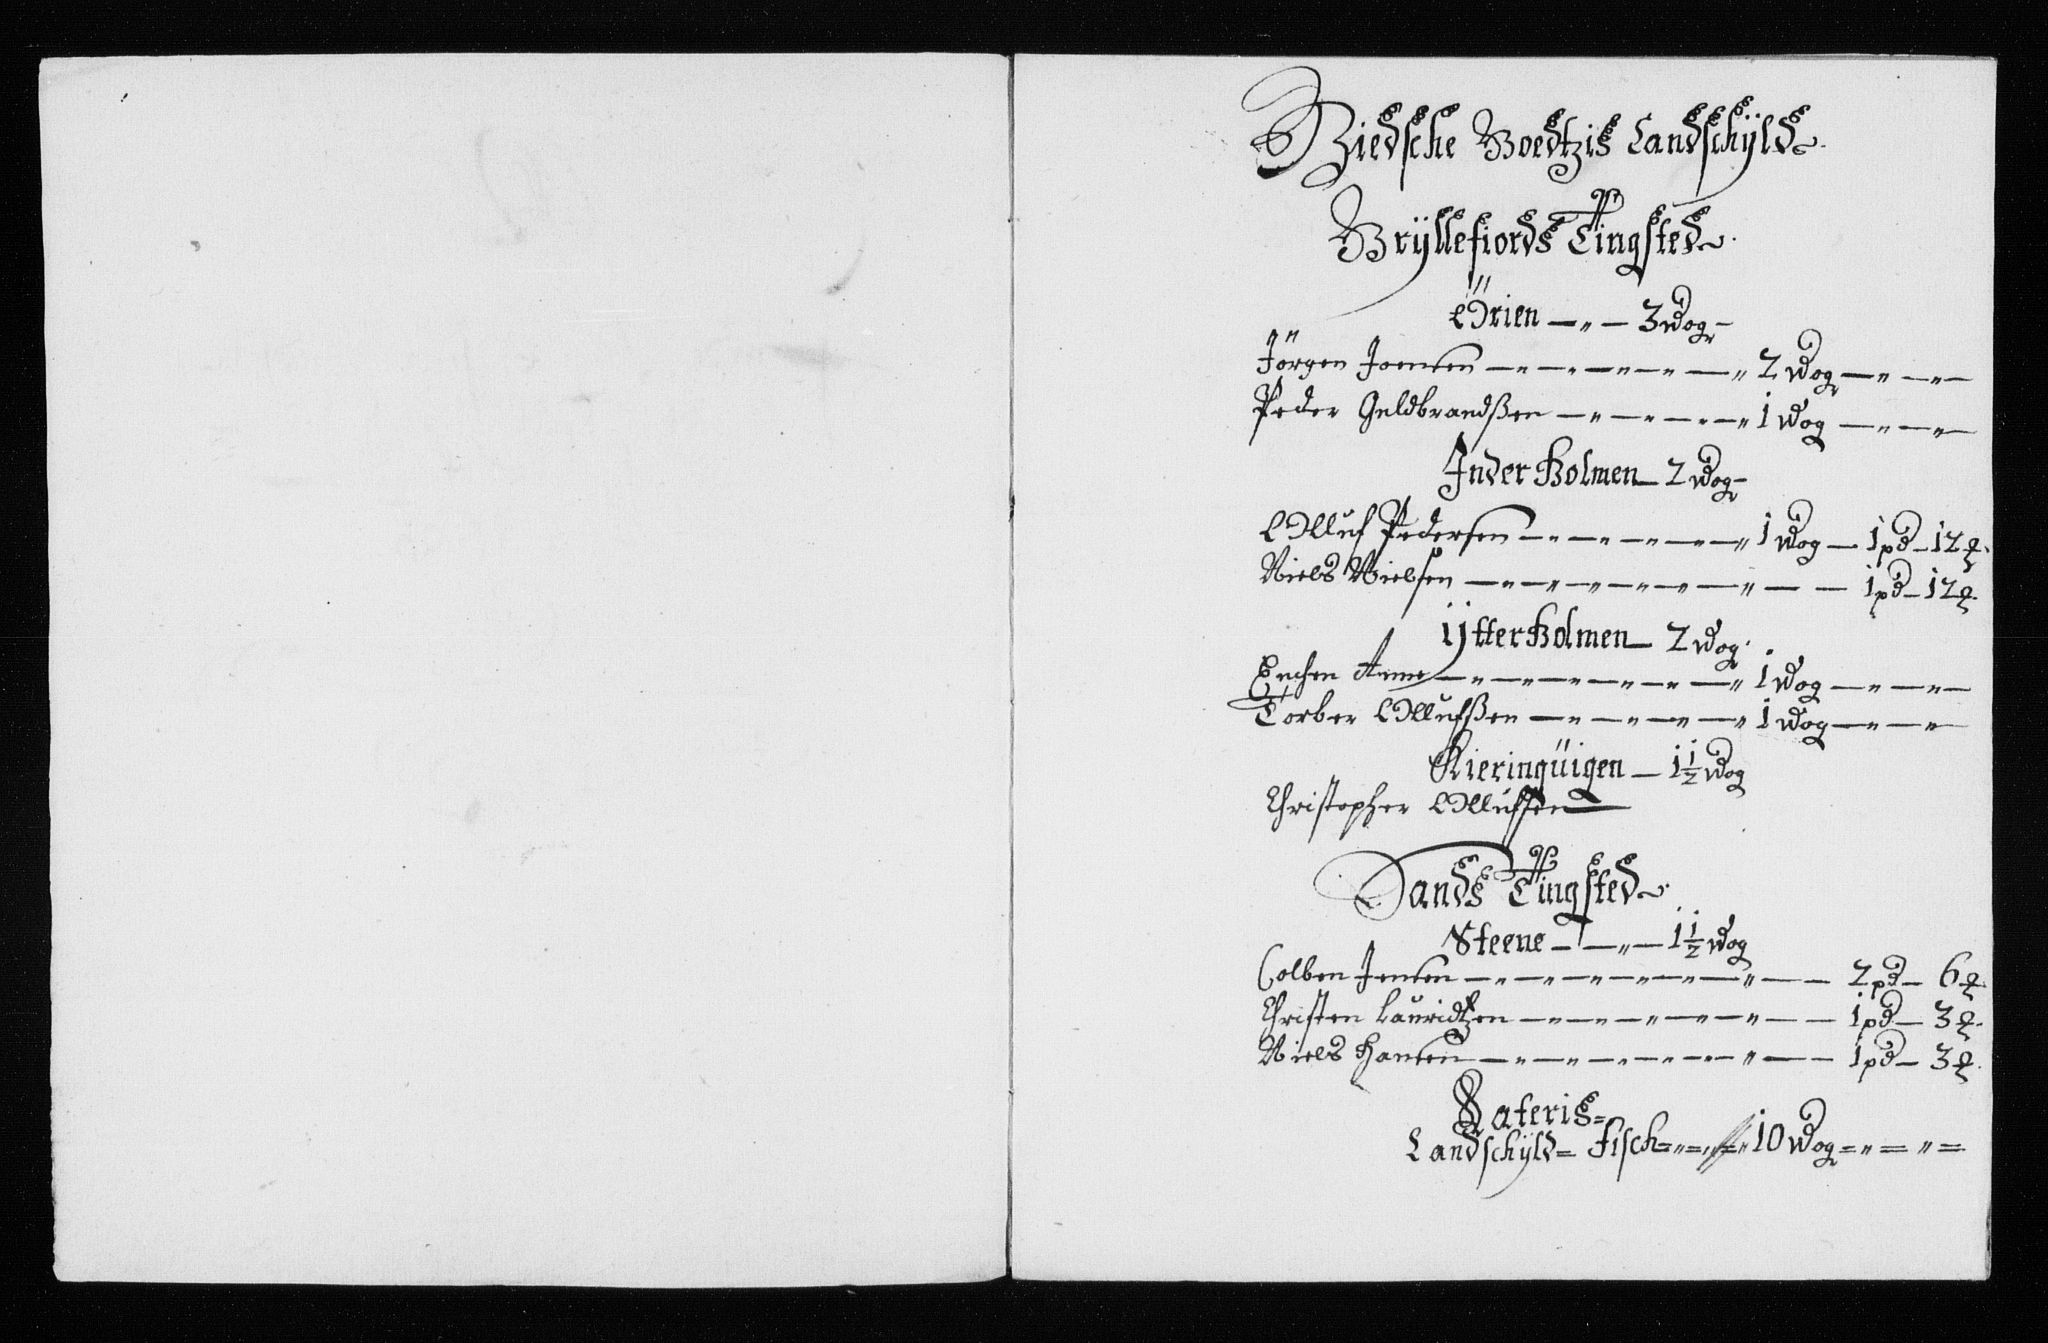 Biedsche Boedtzis Landschÿld
Brÿllefiords Tingsted
Örien — 3 wog
Jörgen Joensen — 2 wog
Peder Guldbrandßen — 1 wog
Inder Holmen — 2 wog
Olluf Pedersen — 1 wog — 1 pd — 12 ℔
Niels Nielsen — 1 pd — 12 ℔
Ÿtter Holmen — 2 wog
Enchen Anne — 1 wog
Torber Ollufßen — 1 wog
Kieringüigen — 1½ wog
Christopher Ollufsen
Sands Tingsted
Steene — 1½ wog
Colben Jensen — 2 pd — 6 ℔
Christen Lauridtzen — 1 pd — 3 ℔
Niels Hansen — 1 pd — 3 ℔
Lateris =
Landschÿld = fisch = 10 wog